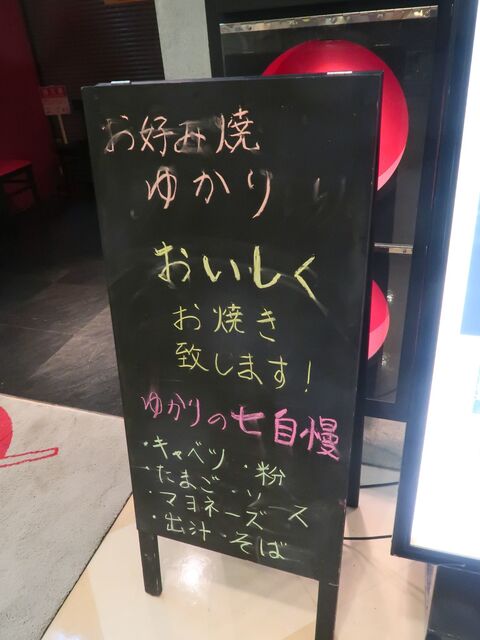 お好み焼
ゆかり
おいしく
お焼き
致します!
ゆかりの七自慢
・キャベツ ・粉
・たまご ・ソース
・マヨネーズ
・出汁 ・そば